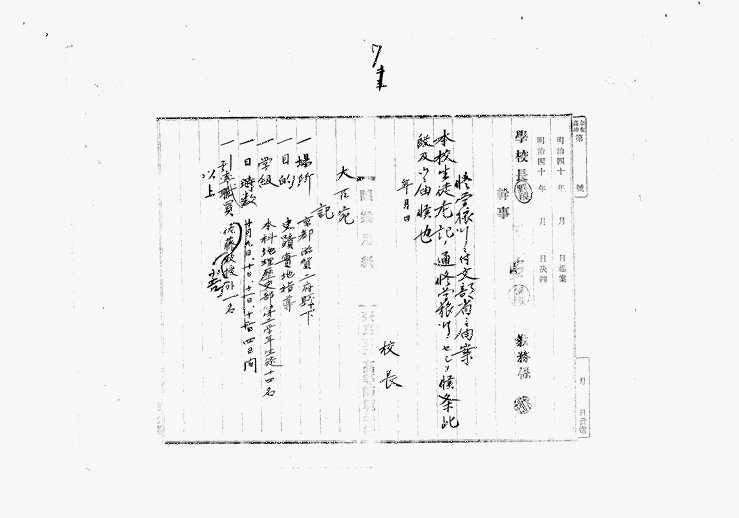 奈女高師
第 號
明治四十 年 月 日起案
明治四十 年 月 日決判
月 日發送
學校長
幹事
教務係
修学旅行ニ付文部省ヘ届案
本校生徒左記ノ通修学旅行セシメ候条此
段及御届候也
年 月 日
校長
大臣宛
記
一 場所 京都滋賀二府縣下
一 目的 史蹟實地指導
一 学級 本科地理歴史部第三学年生徒十四名
一 日時数 十月九日、十日、十一日、十二日 四日間
一 引率職員 佐藤教授外一名
以上